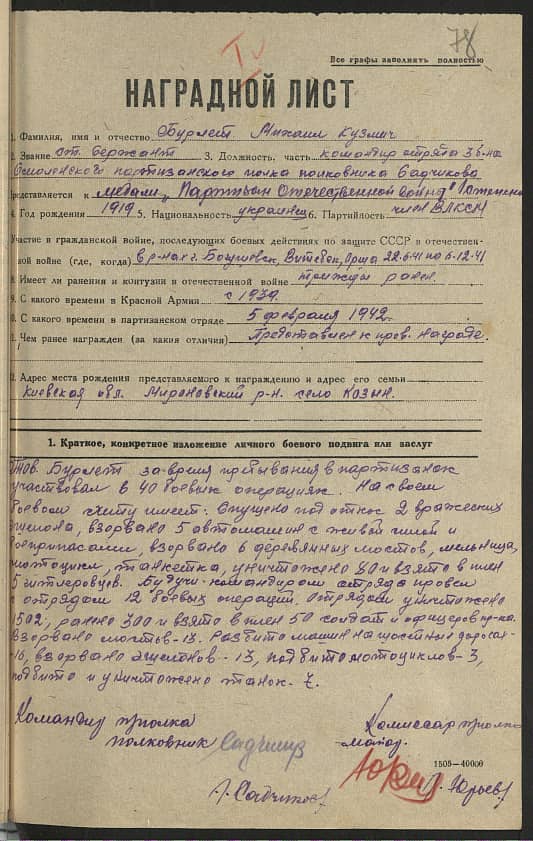 78
Все графы заполнять полностью
НАГРАДНОЙ ЛИСТ
1. Фамилия, имя и отчество Бурлет Михаил Кузмич
2. Звание ст. сержант 3. Должность, часть командир отряда 3 б-на
Смоленского партизанского полка полковника Садчикова
Представляется к медали „Партизан Отечественной войны" I степени
4. Год рождения 1919 5. Национальность украинец 6. Партийность член ВЛКСМ
Участие в гражданской войне, последующих боевых действиях по защите СССР в отечествен-
ной войне (где, когда) в р-нах г. Богушевск, Витебск, Орша 22.6.41 по 6.12.41
8. Имеет ли ранения и контузии в отечественной войне трижды ранен
9. С какого времени в Красной Армии с 1939.
0. С какого времени в партизанском отряде 5 февраля 1942.
1. Чем ранее награжден (за какия отличия) Представлен к прав. награде.
2. Адрес места рождения представляемого к награждению и адрес его семьи
Киевская обл. Мироновский р-н. село Козын.
1. Краткое, конкретное изложение личного боевого подвига или заслуг
Тов. Бурлет за время пребывания в партизанах
участвовал в 40 боевых операциях. На своем
боевом счету имеет: Спущено под откос 2 вражеских
эшелона, взорвано 5 автомашин с живой силой и
боеприпасами, взорвано 6 деревянных мостов, мельница,
мотоцикл, танкетка, уничтожено 80 и взято в плен
5 гитлеровцев. Будучи командиром отряда провел
с отрядом 12 боевых операций. Отрядом уничтожено
502, ранено 300 и взято в плен 50 солдат и офицеров пр-ка.
Взорвано мостов-13. Разбито машин на шоссейных дорогах-
-16, взорвано эшелонов - 13, подбито мотоциклов - 3,
подбито и уничтожено танок - 7.
Командир п/полка
полковник Садчиков
/. Садчиков/
Комиссар п/полка
майор
/. Юрьев/
1505—40000